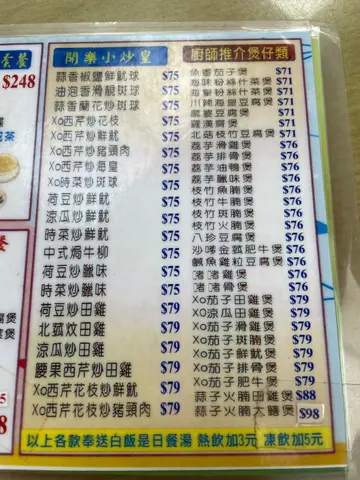 套餐
$248
開樂小炒皇
蒜香椒鹽鮮魷球 $75
油泡香滑脆斑球 $75
蒜香蘭花炒斑球 $75
Xo西芹炒花枝 $75
Xo西芹炒鮮魷 $75
Xo西芹炒豬頸肉 $75
Xo西芹炒海皇 $75
Xo時菜炒斑球 $75
荷豆炒鮮魷 $75
涼瓜炒鮮魷 $75
時菜炒鮮魷 $75
中式焗牛柳 $75
荷豆炒臘味 $75
時菜炒臘味 $75
荷豆炒田雞 $79
北菰炆田雞 $79
涼瓜炒田雞 $79
腰果西芹炒田雞 $79
Xo西芹花枝炒鮮魷 $79
Xo西芹花枝炒豬頸肉 $79
廚師推介煲仔類
魚香茄子煲 $71
海味粉絲什菜煲 $71
海皇粉絲什菜煲 $71
川辣海皇豆腐煲 $71
麻婆豆腐煲 $71
羅漢齋煲 $71
北菇枝竹豆腐煲 $71
荔芋滑雞煲 $76
荔芋排骨煲 $76
荔芋油鴨煲 $76
荔芋臘味煲 $76
枝竹魚腩煲 $76
枝竹牛腩煲 $76
枝竹斑腩煲 $76
枝竹火腩煲 $76
八珍豆腐煲 $76
沙嗲金菰肥牛煲 $76
鹹魚雞粒豆腐煲 $76
啫啫雞煲 $76
啫啫骨煲 $76
Xo茄子田雞煲 $79
XO涼瓜田雞煲 $79
Xo茄子滑雞煲 $79
Xo茄子斑腩煲 $79
Xo茄子鮮魷煲 $79
Xo茄子排骨煲 $79
Xo茄子肥牛煲 $79
蒜子火腩田雞煲 $88
蒜子火腩大鱔煲 $98
以上各款奉送白飯是日餐湯 熱飲加3元 凍飲加5元